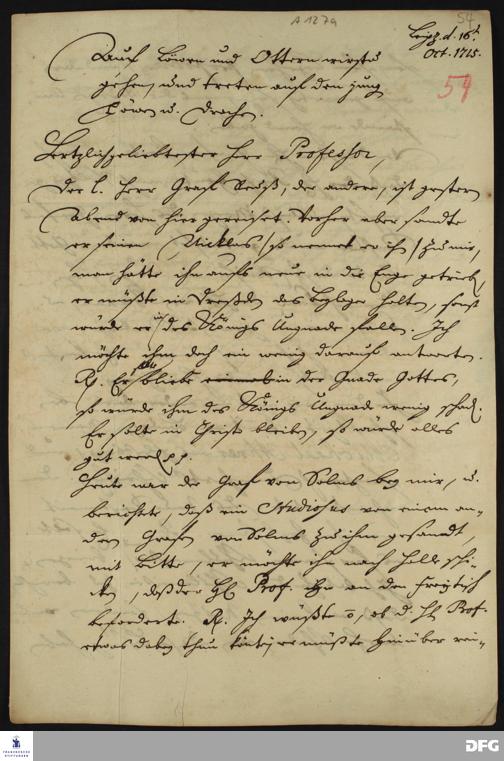 A 127a
54
Leipz. d. 16t.
Oct. 1715.
54
Auf Löwen und Ottern wirstu
gehen, und treten auf den jung
Löwen u. Drachen.
Hertzlichgeliebtester Herr Professor,
der l. Herr Graf Reuß, der andere, ist gestern
Abend von hier gereiset. Vorher aber sandte
er seinen Nicklus / so nennet er ihn / zu mir,
man hätte ihn aufs neue in die Enge getrieb,
er müßte in Dreßden das Beylager halten, sonst
würde er in des Königs Ungnade fallen. Ich
möchte ihm doch ein wenig darauf antworten.
Rp. Er bliebe in der Gnade Gottes,
so würde ihm des Königs Ungnade wenig schad.
Er solte in Christo bleiben, so würde alles
gut werd pp.
Heute war der Graf von Solms bey mir, u.
berichtete, daß ein Studiosus von einem an-
dern Grafen von Solms zu ihm gesandt,
mit Bitte, er möchte ihn nach Halle schi-
cken, daß der H. Prof. ihn an den Freytisch
beforderte. Rp. Ich wüßte ō, ob d. H. Prof.
etwas dabey thun könte, er müßte hinüber rei-
FRANCKESCHE
STIFTUNGEN
DFG